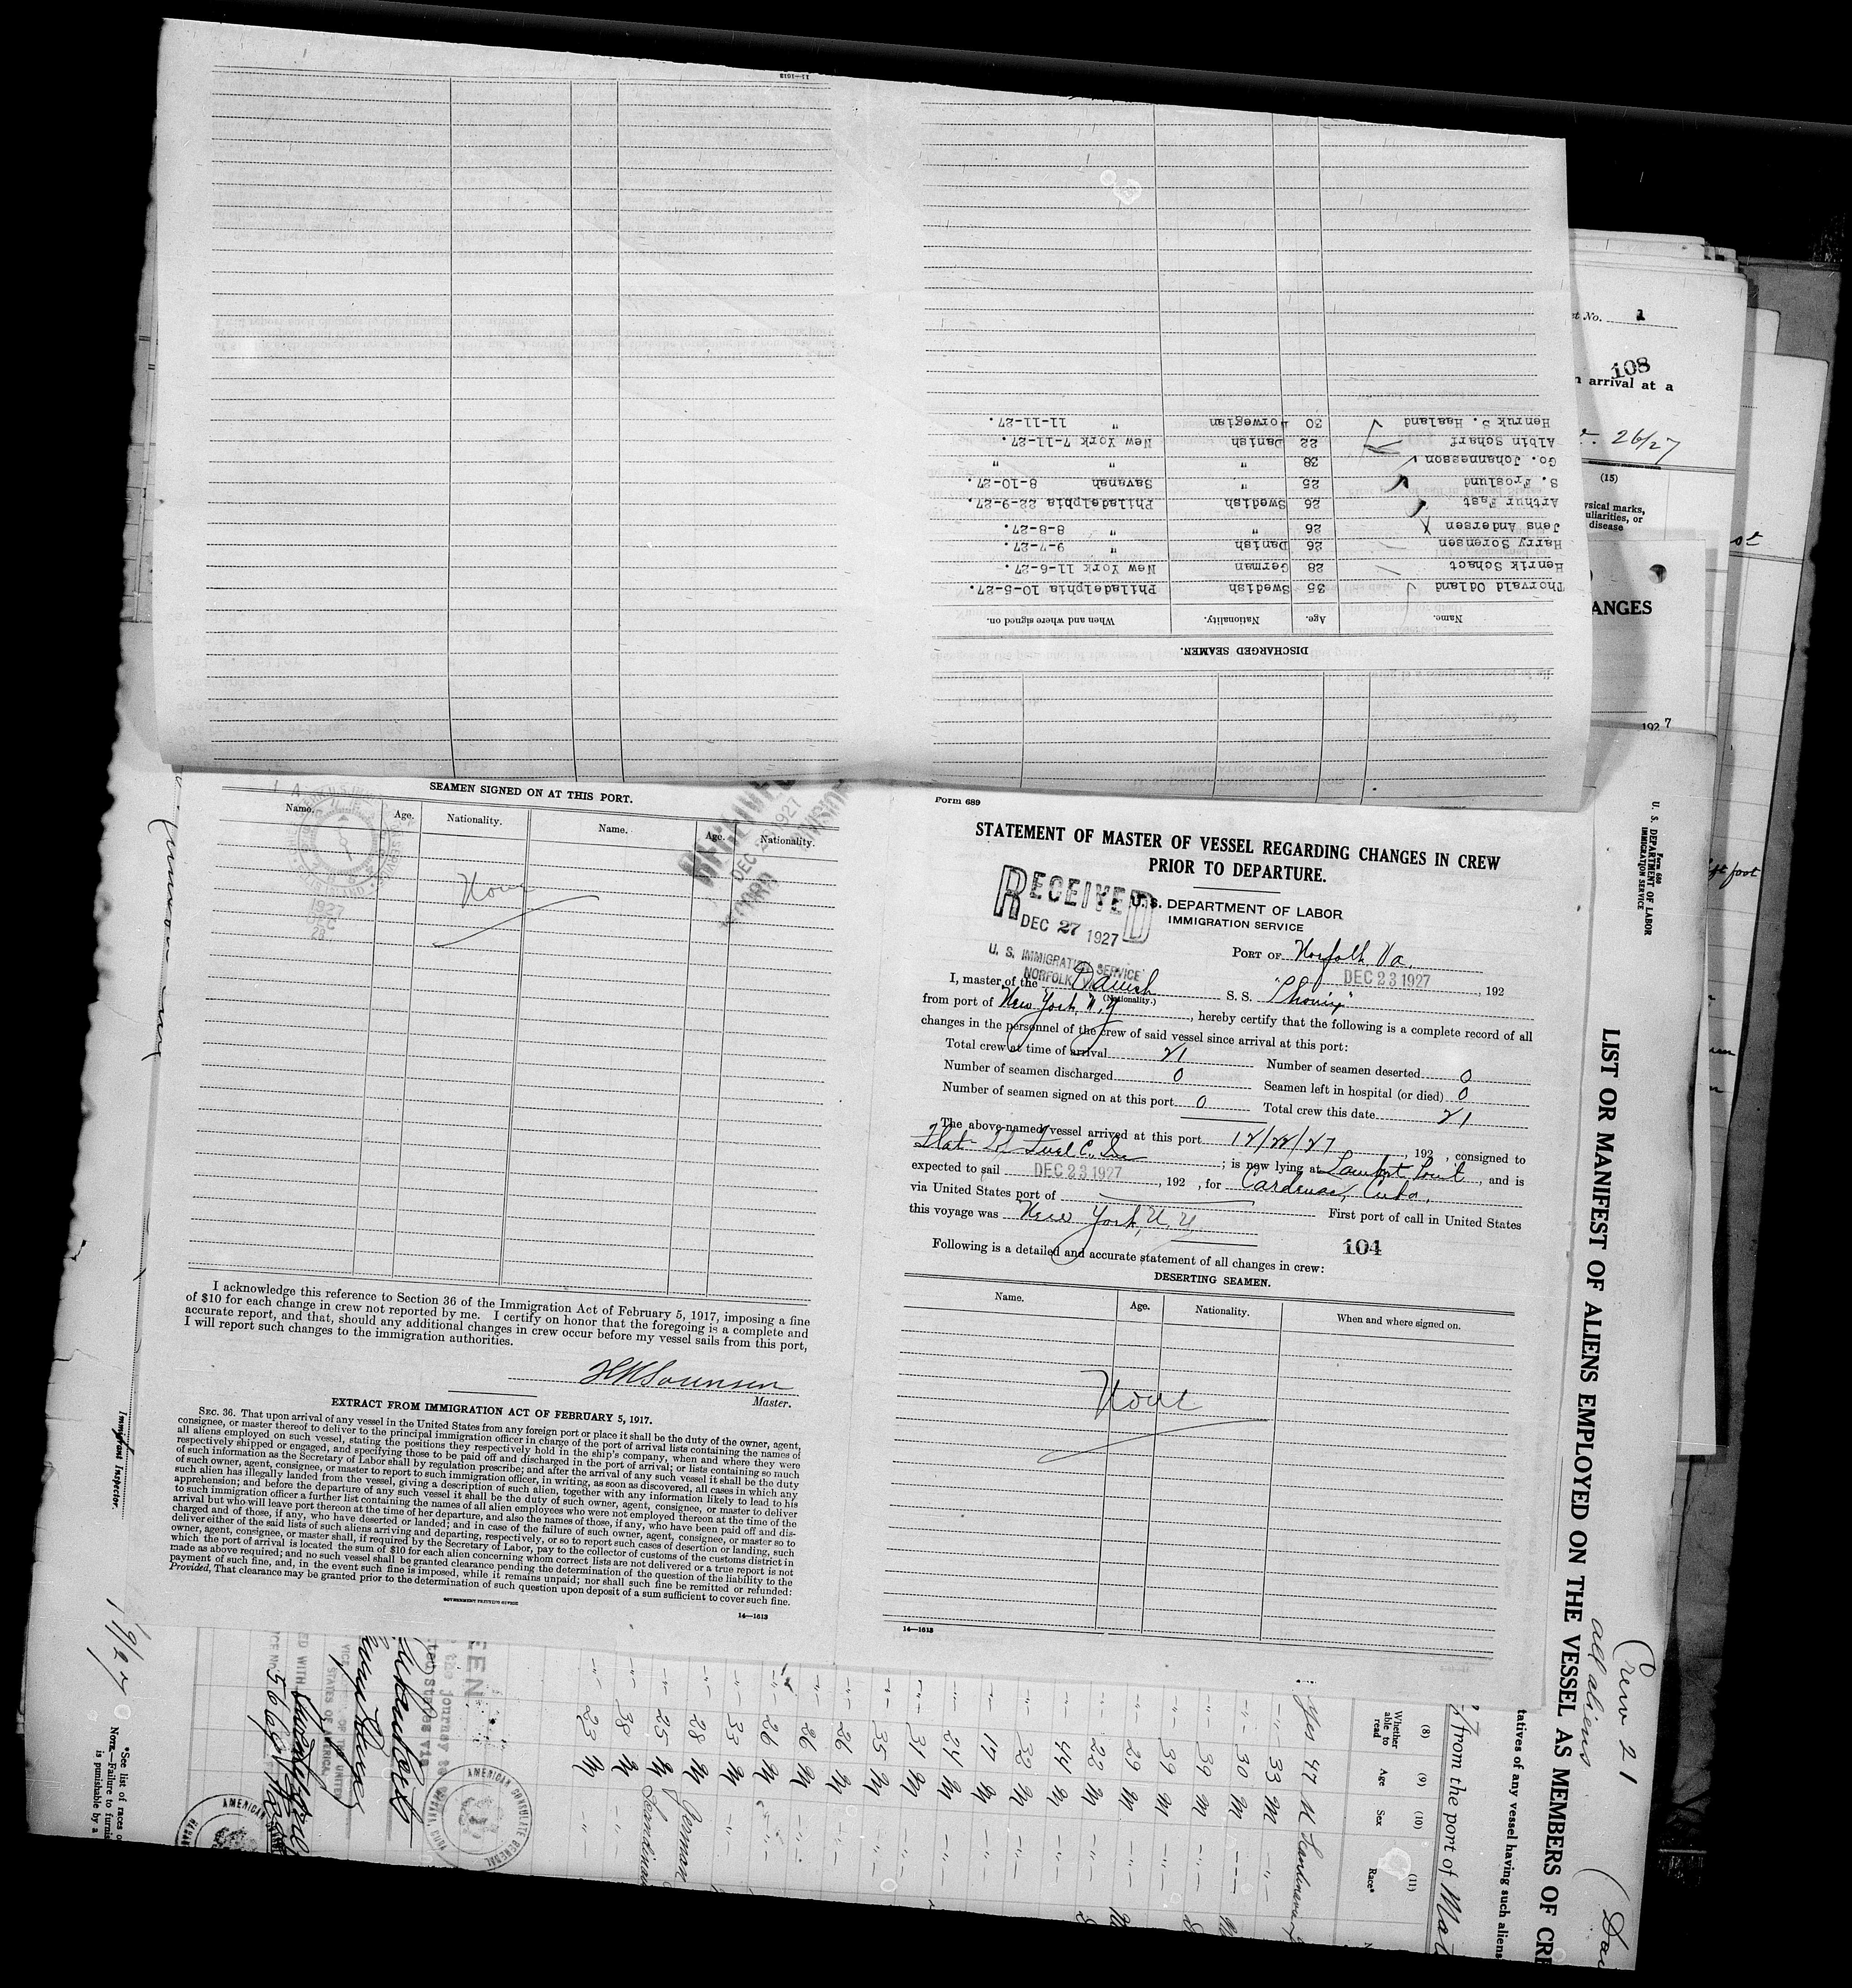 14—1613
DISCHARGED SEAMEN.
Name. Age. Nationality. When and where signed on.
Thorvald Odland 35 Swedish Philadelphia 10-5-27.
Henrik Schact 28 German New York 11-6-27.
Harry Sorensen 26 Danish " 9-7-27.
Jens Andersen 26 " " 8-8-27.
Arthur Fast 26 Swedish Philadelphia 22-9-27.
S. Froslund 25 " Savanah 8-10-27.
Go. Johannesson 38 " " "
Albin Scharf 22 Danish New York 7-11-27.
Henruk S. Haaland 30 Norwegian " 11-11-27.
SEAMEN SIGNED ON AT THIS PORT.
Name. Age. Nationality. Name. Age. Nationality.
None
1927
DEC
23
DEC 2 1927
I acknowledge this reference to Section 36 of the Immigration Act of February 5, 1917, imposing a fine
of $10 for each change in crew not reported by me. I certify on honor that the foregoing is a complete and
accurate report, and that, should any additional changes in crew occur before my vessel sails from this port,
I will report such changes to the immigration authorities.
Master.
EXTRACT FROM IMMIGRATION ACT OF FEBRUARY 5, 1917.
SEC. 36. That upon arrival of any vessel in the United States from any foreign port or place it shall be the duty of the owner, agent,
consignee, or master thereof to deliver to the principal immigration officer in charge of the port of arrival lists containing the names of
all aliens employed on such vessel, stating the positions they respectively hold in the ship's company, when and where they were
respectively shipped or engaged, and specifying those to be paid off and discharged in the port of arrival; or lists containing so much
of such information as the Secretary of Labor shall by regulation prescribe; and after the arrival of any such vessel it shall be the duty
of such owner, agent, consignee, or master to report to such immigration officer, in writing, as soon as discovered, all cases in which any
such alien has illegally landed from the vessel, giving a description of such alien, together with any information likely to lead to his
apprehension; and before the departure of any such vessel it shall be the duty of such owner, agent, consignee, or master to deliver
to such immigration officer a further list containing the names of all alien employees who were not employed thereon at the time of the
arrival but who will leave port thereon at the time of her departure, and also the names of those, if any, who have been paid off and dis-
charged and of those, if any, who have deserted or landed; and in case of the failure of such owner, agent, consignee, or master so to
deliver either of the said lists of such aliens arriving and departing, respectively, or so to report such cases of desertion or landing, such
owner, agent, consignee, or master shall, if required by the Secretary of Labor, pay to the collector of customs of the customs district in
which the port of arrival is located the sum of $10 for each alien concerning whom correct lists are not delivered or a true report is not
made as above required; and no such vessel shall be granted clearance pending the determination of the question of the liability to the
payment of such fine, and, in the event such fine is imposed, while it remains unpaid; nor shall such fine be remitted or refunded:
Provided, That clearance may be granted prior to the determination of such question upon deposit of a sum sufficient to cover such fine.
GOVERNMENT PRINTING OFFICE
14—1613
Form 689
STATEMENT OF MASTER OF VESSEL REGARDING CHANGES IN CREW
PRIOR TO DEPARTURE.
U. S. DEPARTMENT OF LABOR
IMMIGRATION SERVICE
RECEIVED
DEC 27 1927
U. S. IMMIGRATION SERVICE
NORFOLK
PORT OF Norfolk Va.
DEC 23 1927, 192
I, master of the Danish (Nationality.) S. S. "Phonix"
from port of New York, N.Y, hereby certify that the following is a complete record of all
changes in the personnel of the crew of said vessel since arrival at this port:
Total crew at time of arrival 21 Number of seamen deserted 0
Number of seamen discharged 0 Seamen left in hospital (or died) 0
Number of seamen signed on at this port 0 Total crew this date 21
The above-named vessel arrived at this port 12/22/27, 192 , consigned to
Fuel Co. Inc; is now lying at Lambert Point, and is
expected to sail DEC 23 1927, 192 , for Cardenas, Cuba,
via United States port of First port of call in United States
this voyage was New York, N.Y.
104
Following is a detailed and accurate statement of all changes in crew:
DESERTING SEAMEN.
Name. Age. Nationality. When and where signed on.
None
14—1613
No. 1
108
arrival at a
26/27
(15)
disease
ANGES
1927
foot
Form 680
U. S. DEPARTMENT OF LABOR
IMMIGRATION SERVICE
LIST OR MANIFEST OF ALIENS EMPLOYED ON THE VESSEL AS MEMBERS OF CRE
Crew 21
all aliens
tatives of any vessel having such aliens
from the port of
(8) (9) (10) (11)
Whether able to read Age Sex Race*
Yes 47 M
33 M
30 M
39 M
39 M
29 M
22 M
44 M
32 M
17 M
24 M
31 M
35 M
26 M
26 M
26 M
33 M
28 M German
25 M
38 M
23 M
AMERICAN CONSULATE GENERAL
the journey to
ted States via
STATES OF AMERICA.
Immigrant Inspector.
*See list of races
NOTE.—Failure to furnis
is punishable by a